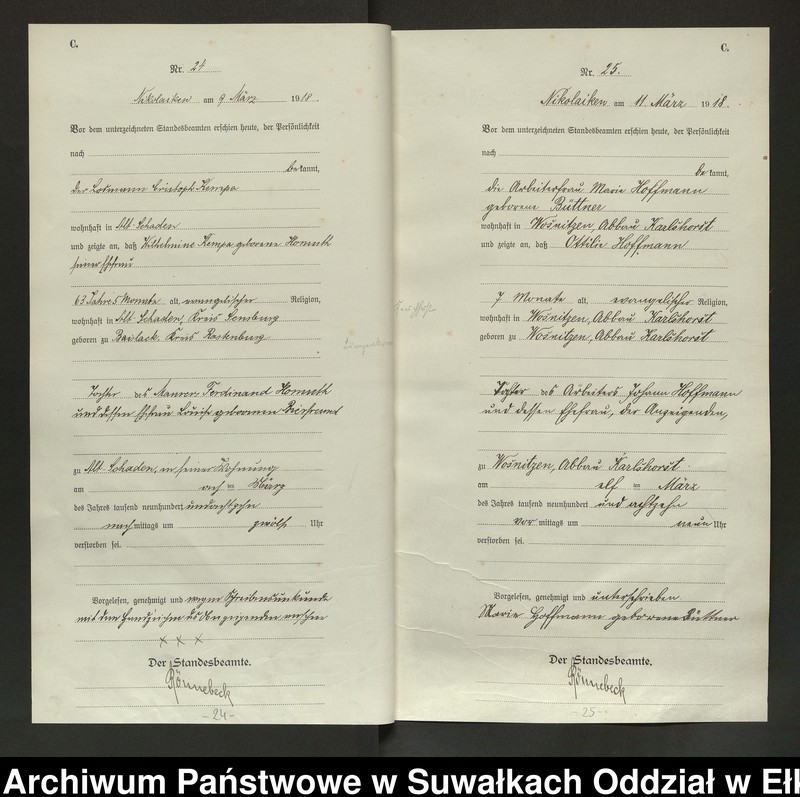 C.
Nr. 24
Nikolaiken am 9 März 1918.
Vor dem unterzeichneten Standesbeamten erschien heute, der Persönlichkeit
nach
bekannt,
der Losmann Cristoph Kempa
wohnhaft in Alt Schaden
und zeigte an, daß Wilhelmine Kempa geborene Homuth
seiner Ehefrau
63 Jahre 5 Monate alt, evangelischer Religion,
wohnhaft in Alt Schaden, Kreis Sensburg
geboren zu Bäslack, Kreis Rastenburg
Tochter des Maurers Ferdinand Homuth
und dessen Ehefrau Louise geborenen
zu Alt Schaden, in seiner Wohnung
am acht ten März
des Jahres tausend neunhundert undachtzehn
nachmittags um zwölf Uhr
verstorben sei.
Vorgelesen, genehmigt und wegen Schreibensunkunde
mit dem Handzeichen des Anzeigenden versehen
x x x
Der Standesbeamte.
Rönnebeck
- 24 -
C.
Nr. 25.
Nikolaiken am 11. März 1918.
Vor dem unterzeichneten Standesbeamten erschien heute, der Persönlichkeit
nach
bekannt,
die Arbeiterfrau Marie Hoffmann
geborene Büttner
wohnhaft in Wosnitzen, Abbau Karlshorst
und zeigte an, daß Ottilie Hoffmann
7 Monate alt, evangelischer Religion,
wohnhaft in Wosnitzen, Abbau Karlshorst
geboren zu Wosnitzen, Abbau Karlshorst
Tochter des Arbeiters Johann Hoffmann
und dessen Ehefrau, der Anzeigenden,
zu Wosnitzen, Abbau Karlshorst
am elf ten März
des Jahres tausend neunhundert und achtzehn
vor mittags um neun Uhr
verstorben sei.
Vorgelesen, genehmigt und unterschrieben
Marie Hoffmann geborene Büttner
Der Standesbeamte.
Rönnebeck
- 25 -
Archiwum Państwowe w Suwałkach Oddział w Ełk